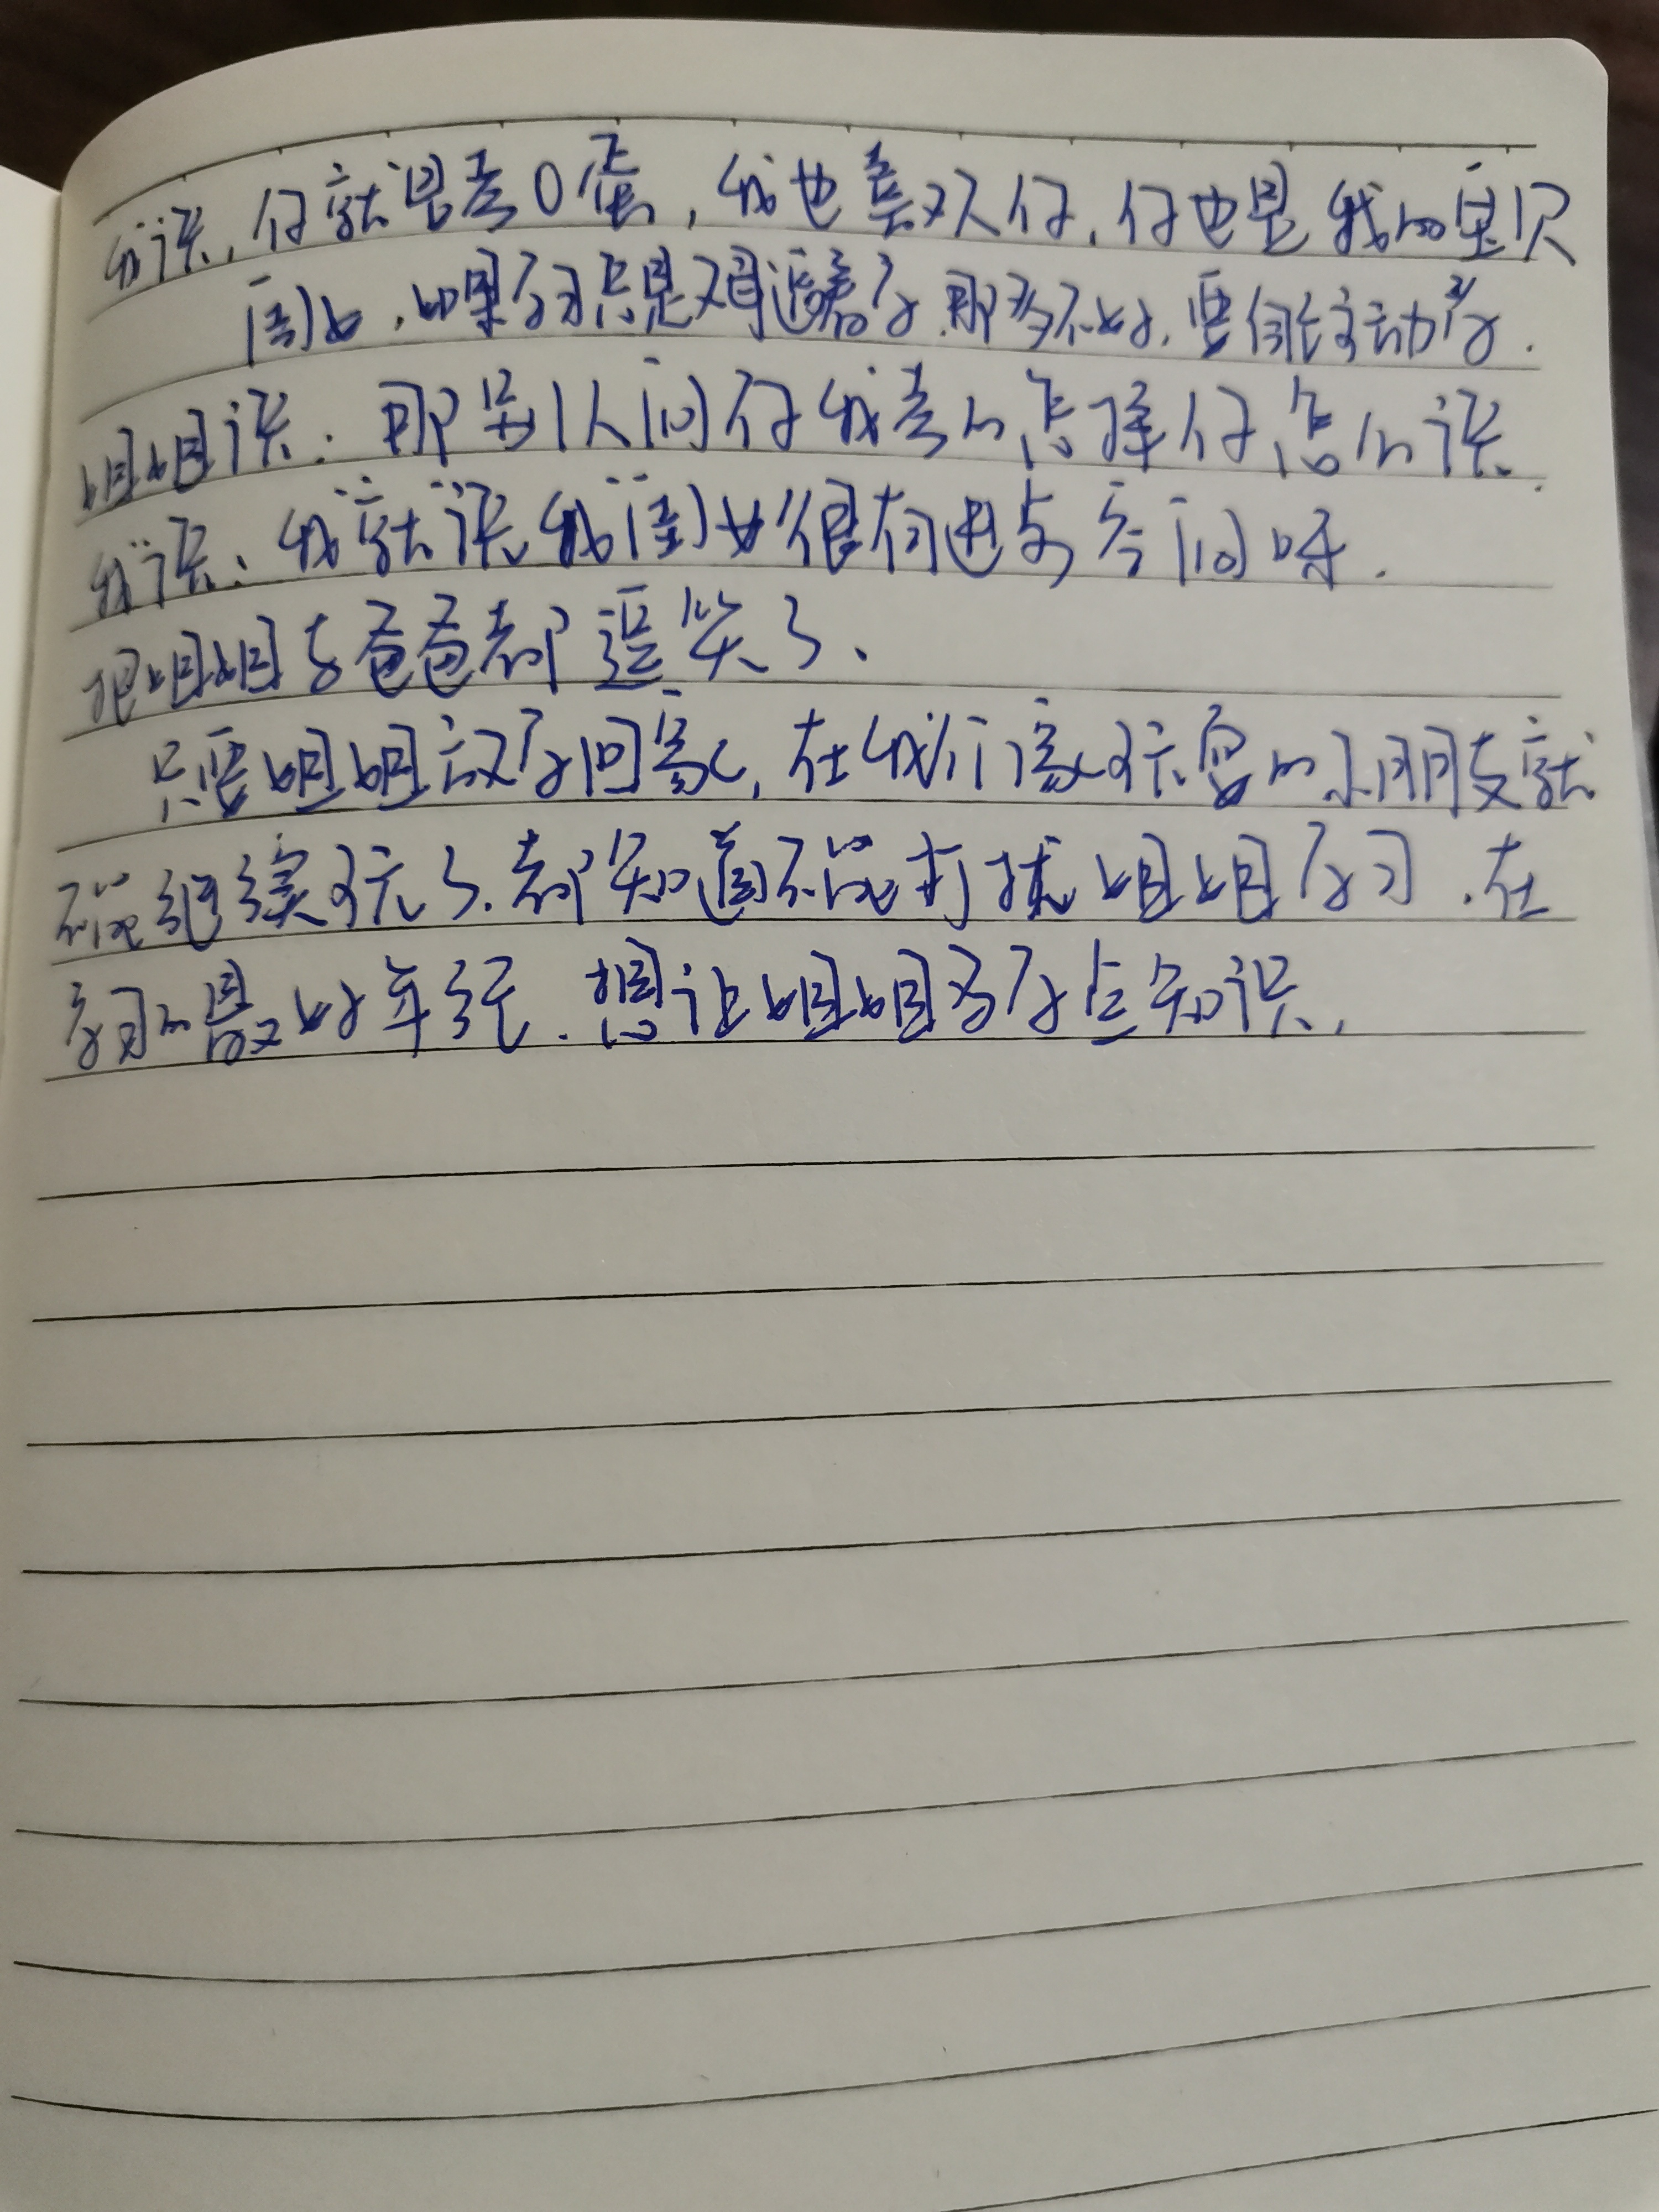 我说，你就是考0蛋，我也喜欢你，你也是我的宝贝
闺女，如果学习只是又母逼着学，那多不好，要能主动学．
姐姐说：那别人问你我考的怎样你怎么说．
我说：我就说我闺女很有进步空间呀．
把姐姐与爸爸都逗笑了、
只要姐姐放学回家，在我们家玩耍的小朋友就
不能继续玩了．都知道不能打扰姐姐学习．在
学习的最好年纪．想让姐姐多学点知识，